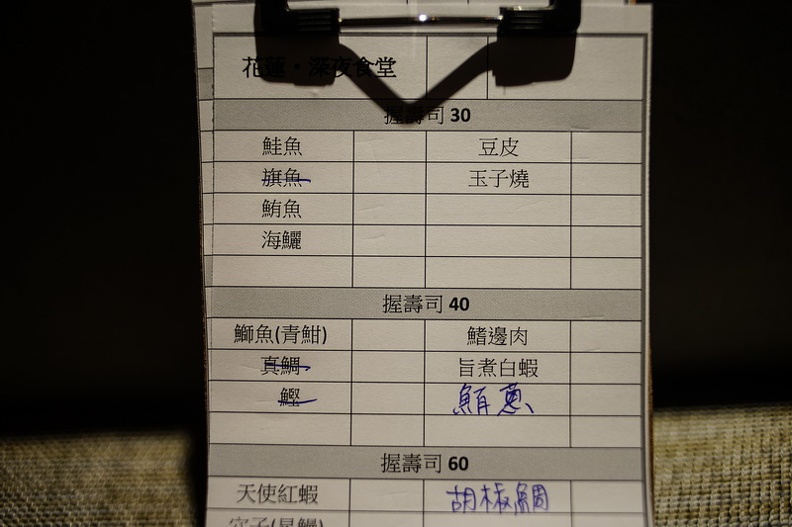 花蓮・深夜食堂
握壽司 30
鮭魚 豆皮
旗魚 玉子燒
鮪魚
海鱺
握壽司 40
鰤魚(青魽) 鰭邊肉
真鯛 旨煮白蝦
鰹 鮪蔥
握壽司 60
天使紅蝦 胡椒鯛
穴子(星鰻)